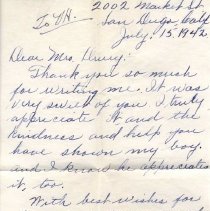 2002 Market St.
To VH. San Diego, Calif
July 15, 1942
Dear Mrs. Drury:
Thank you so much
for writing me. It was
very sweet of you. I truly
appreciate it and the
kindness and help you
have shown my boy.
and I know he appreciates
it, too.
With best wishes for